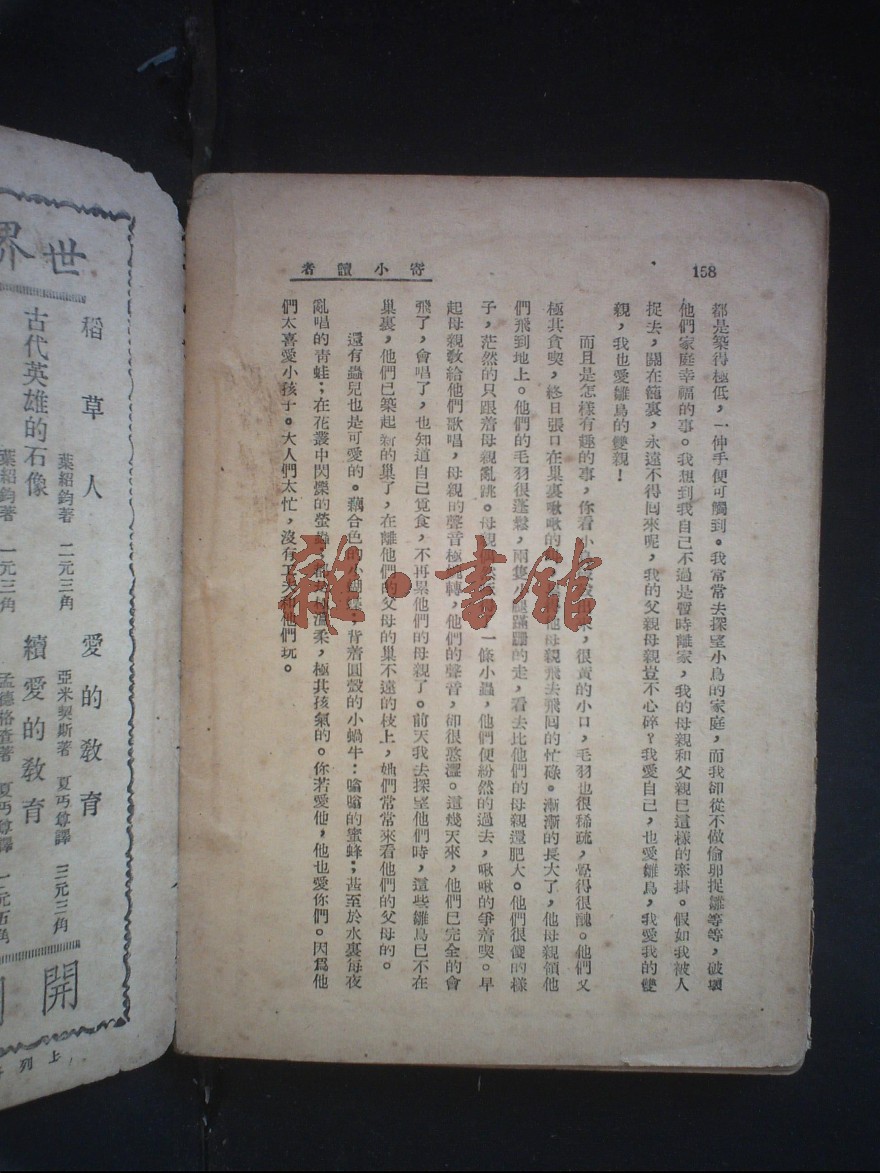 158
寄小讀者
都是築得極低，一伸手便可觸到。我常常去探望小鳥的家庭，而我卻從不做偷卵捉雛等等，破壞
他們家庭幸福的事。我想到我自己不過是暫時離家，我的母親和父親已這樣的牽掛。假如我被人
捉去，關在籠裏，永遠不得回來呢，我的父親母親豈不心碎？我愛自己，也愛雛鳥，我愛我的雙
親，我也愛雛鳥的雙親！
而且是怎樣有趣的事，你看小鳥，很黃的小口，毛羽也很稀疏，覺得很醜。他們又
極其貪喫，終日張口在巢裏啾啾的他母親飛去飛回的忙碌。漸漸的長大了，他母親領他
們飛到地上。他們的毛羽很蓬鬆，兩隻小腿蹣跚的走，看去比他們的母親還肥大。他們很傻的樣
子，茫然的只跟着母親亂跳。母親一條小蟲，他們便紛然的過去，啾啾的爭着喫。早
起母親敎給他們歌唱，母親的聲音極轉，他們的聲音，卻很憨澀。這幾天來，他們已完全的會
飛了，會唱了，也知道自己覓食，不再累他們的母親了。前天我去探望他們時，這些雛鳥已不在
巢裏，他們已築起新的巢了，在離他們的父母的巢不遠的枝上，她們常常來看他們的父母的。
還有蟲兒也是可愛的。藕合色的小，背着圓殼的小蝸牛；嗡嗡的蜜蜂；甚至於水裏每夜
亂唱的青蛙；在花叢中閃爍的螢蟲，溫柔，極其孩氣的。你若愛他，他也愛你們。因爲他
們太喜愛小孩子。大人們太忙，沒有工夫和他們玩。
雜·書館
世界
稻草人 葉紹鈞著 二元三角
愛的敎育 亞米契斯著 夏丏尊譯 三元三角
古代英雄的石像 葉紹鈞著 一元三角
續愛的敎育 孟德格查著 夏丏尊譯 二元五角
開
上列